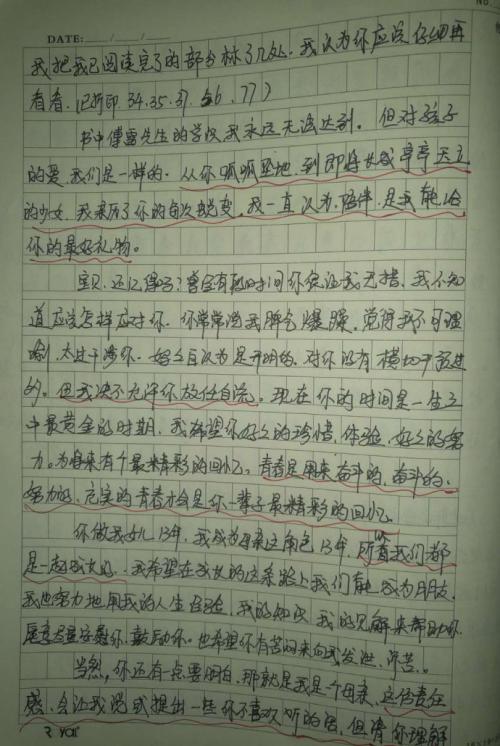 NO.
DATE: / /
我把我已阅读完了的部分标了几处,我认为你应该仔细再
看看.(已折印 34.35.37. 56.77)
书中傅雷先生的学识我永远无法达到。但对孩子
的爱,我们是一样的.从你呱呱坠地,到即将长成亭亭玉立
的少女,我亲历了你的每次蜕变,我一直认为,陪伴,是我能给
你的最好礼物。
宝贝,还记得吗?曾会有段时间你会让我无措,我不知
道应该怎样应对你.你常常说我脾气爆躁,觉得我不可理
喻,太过干涉你.妈妈自认为是开明的,对你没有横切
的。但我决不允许你放任自流。现在你的时间是一生之
中最黄金的时期,我希望你好好的珍惜,体验,好好的努
力。为将来有个最精彩的回忆。青春是用来奋斗的,奋斗的,
努力的,充实的青春才会是你一辈子最精彩的回忆
你做我女儿13年,我成为母亲这角色13年,所以我们都
是一起成长的,我希望在成长的这条路上我们能成为朋友,
我也努力地用我的人生经验,我的知识,我的见解来帮助你.
愿意尽量安慰你,鼓励你。也希望你有苦闷来向我发泄,诉苦.。
当然,你还有一点要明白,那就是我是个母亲,这份责任
感,会让我说或提出一些你不喜欢听的话,但请你理解